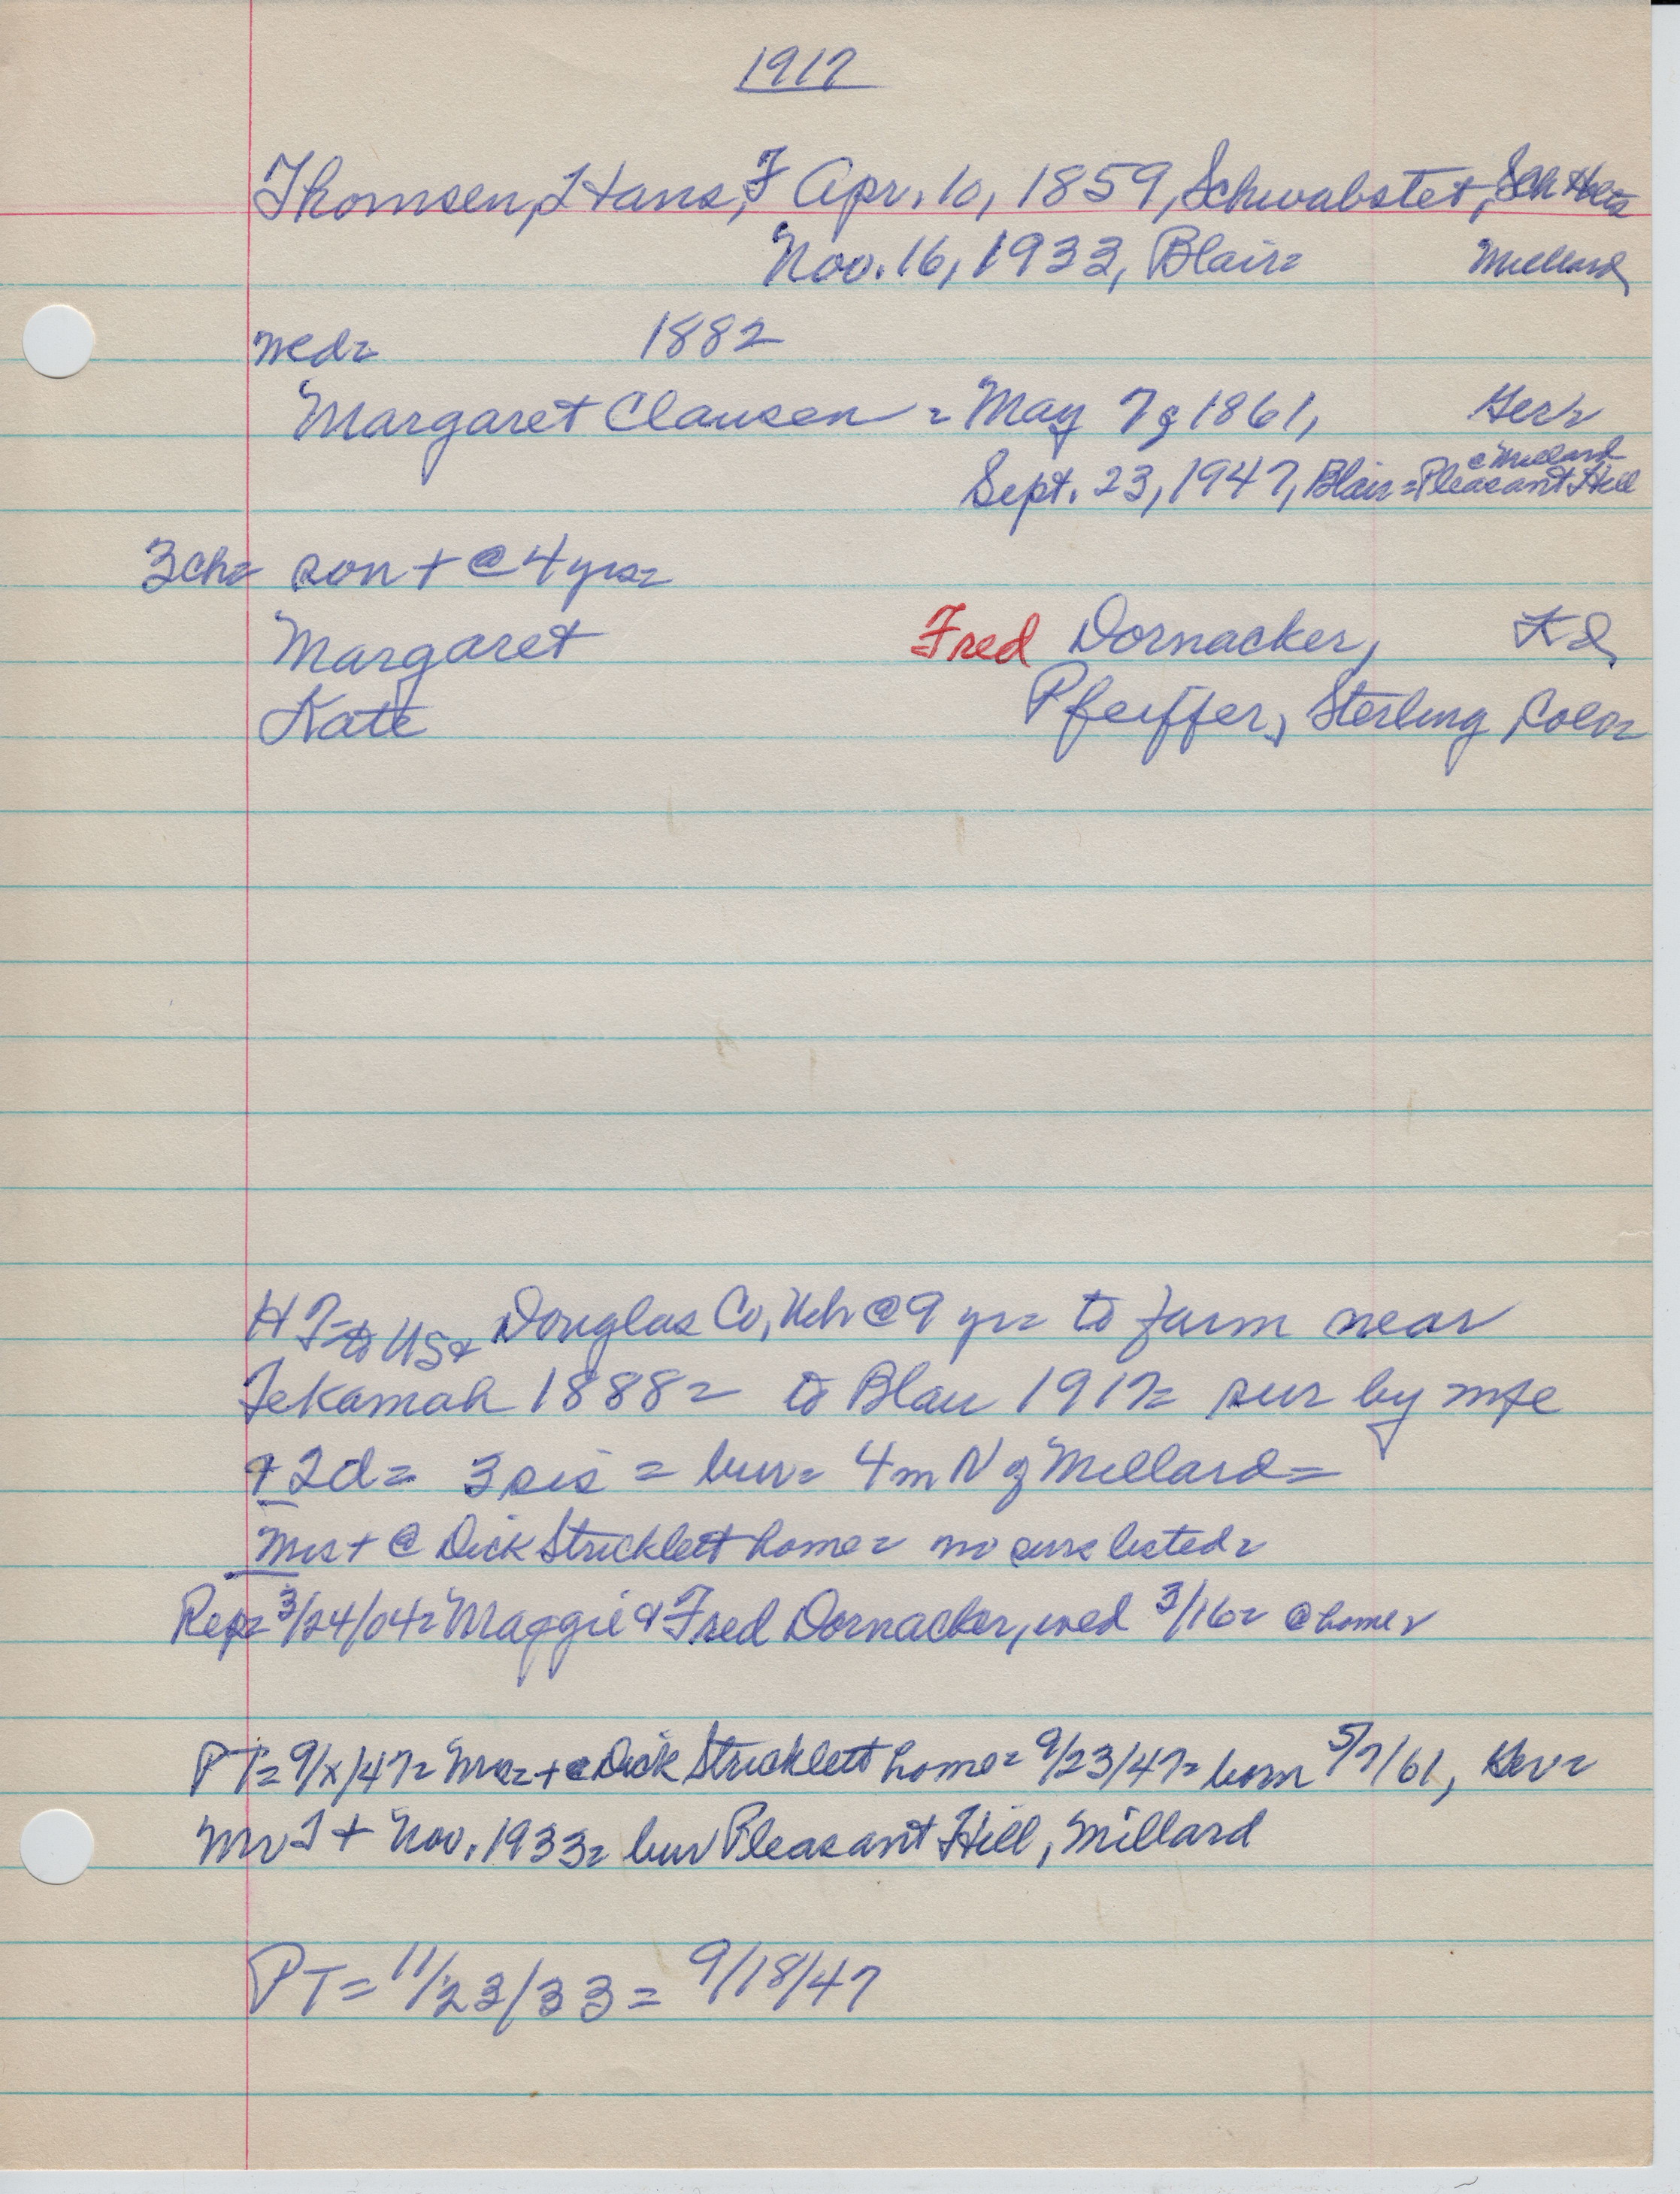 1917
Thomsen, Hans, F Apr. 10, 1859, Schwabstet, Sch Hols
Nov. 16, 1933, Blair= Millard
wed= 1882
Margaret Clausen = May 7, 1861, Ger=
@ Millard
Sept. 23, 1947, Blair = Pleasant Hill
3ch= son + @ 4 yrs=
Margaret Fred Dornacker,
Kate Pfeiffer, Sterling, Colo=
HT= to US & Douglas Co, Neb @ 9 yr= to farm near
Tekamah 1888= to Blair 1917= sur by wfe
+ 2d= 3 sis = bur= 4 m N of Millard=
Mrs + @ Dick Stricklett home= no surs listed=
Rep= 3/24/04= Maggie & Fred Dornacker, wed 3/16= @ home=
PT= 9/x/47= Mrs=+@ Dick Stricklett home= 9/23/47= born 5/7/61, Ger=
Mr T + Nov. 1933= bur Pleasant Hill, Millard
PT= 11/23/33 = 9/18/47